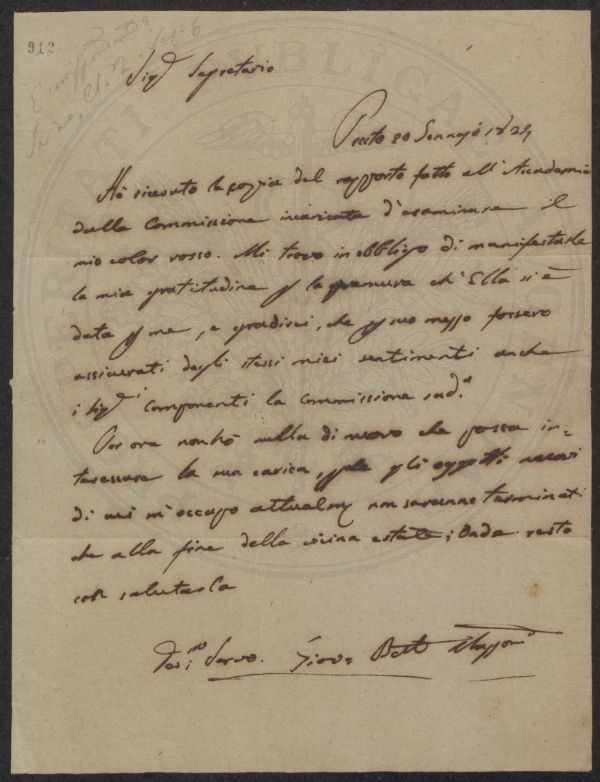 912
Sig.r Segretario
Prato 20 Gennajo 1824
Ho ricevuto la copia del rapporto fatto all'Accademia
dalla Commissione incaricata d'esaminare il
mio color rosso. Mi trovo in obbligo di manifestarle
la mia gratitudine p la premura ch'Ella si è
data p me, e gradirei, che p suo mezzo fossero
assicurati degli stessi miei sentimenti anche
i Sig.i componenti la Commissione sud.a
Per ora non ho nulla di nuovo che possa in=
teressare la sua carica, gli oggetti nuovi
di cui m'occupo attualm non saranno terminati
che alla fine della vicina estate; Onde resto
col salutarla
Dev.mo Servo. Giov. Batt